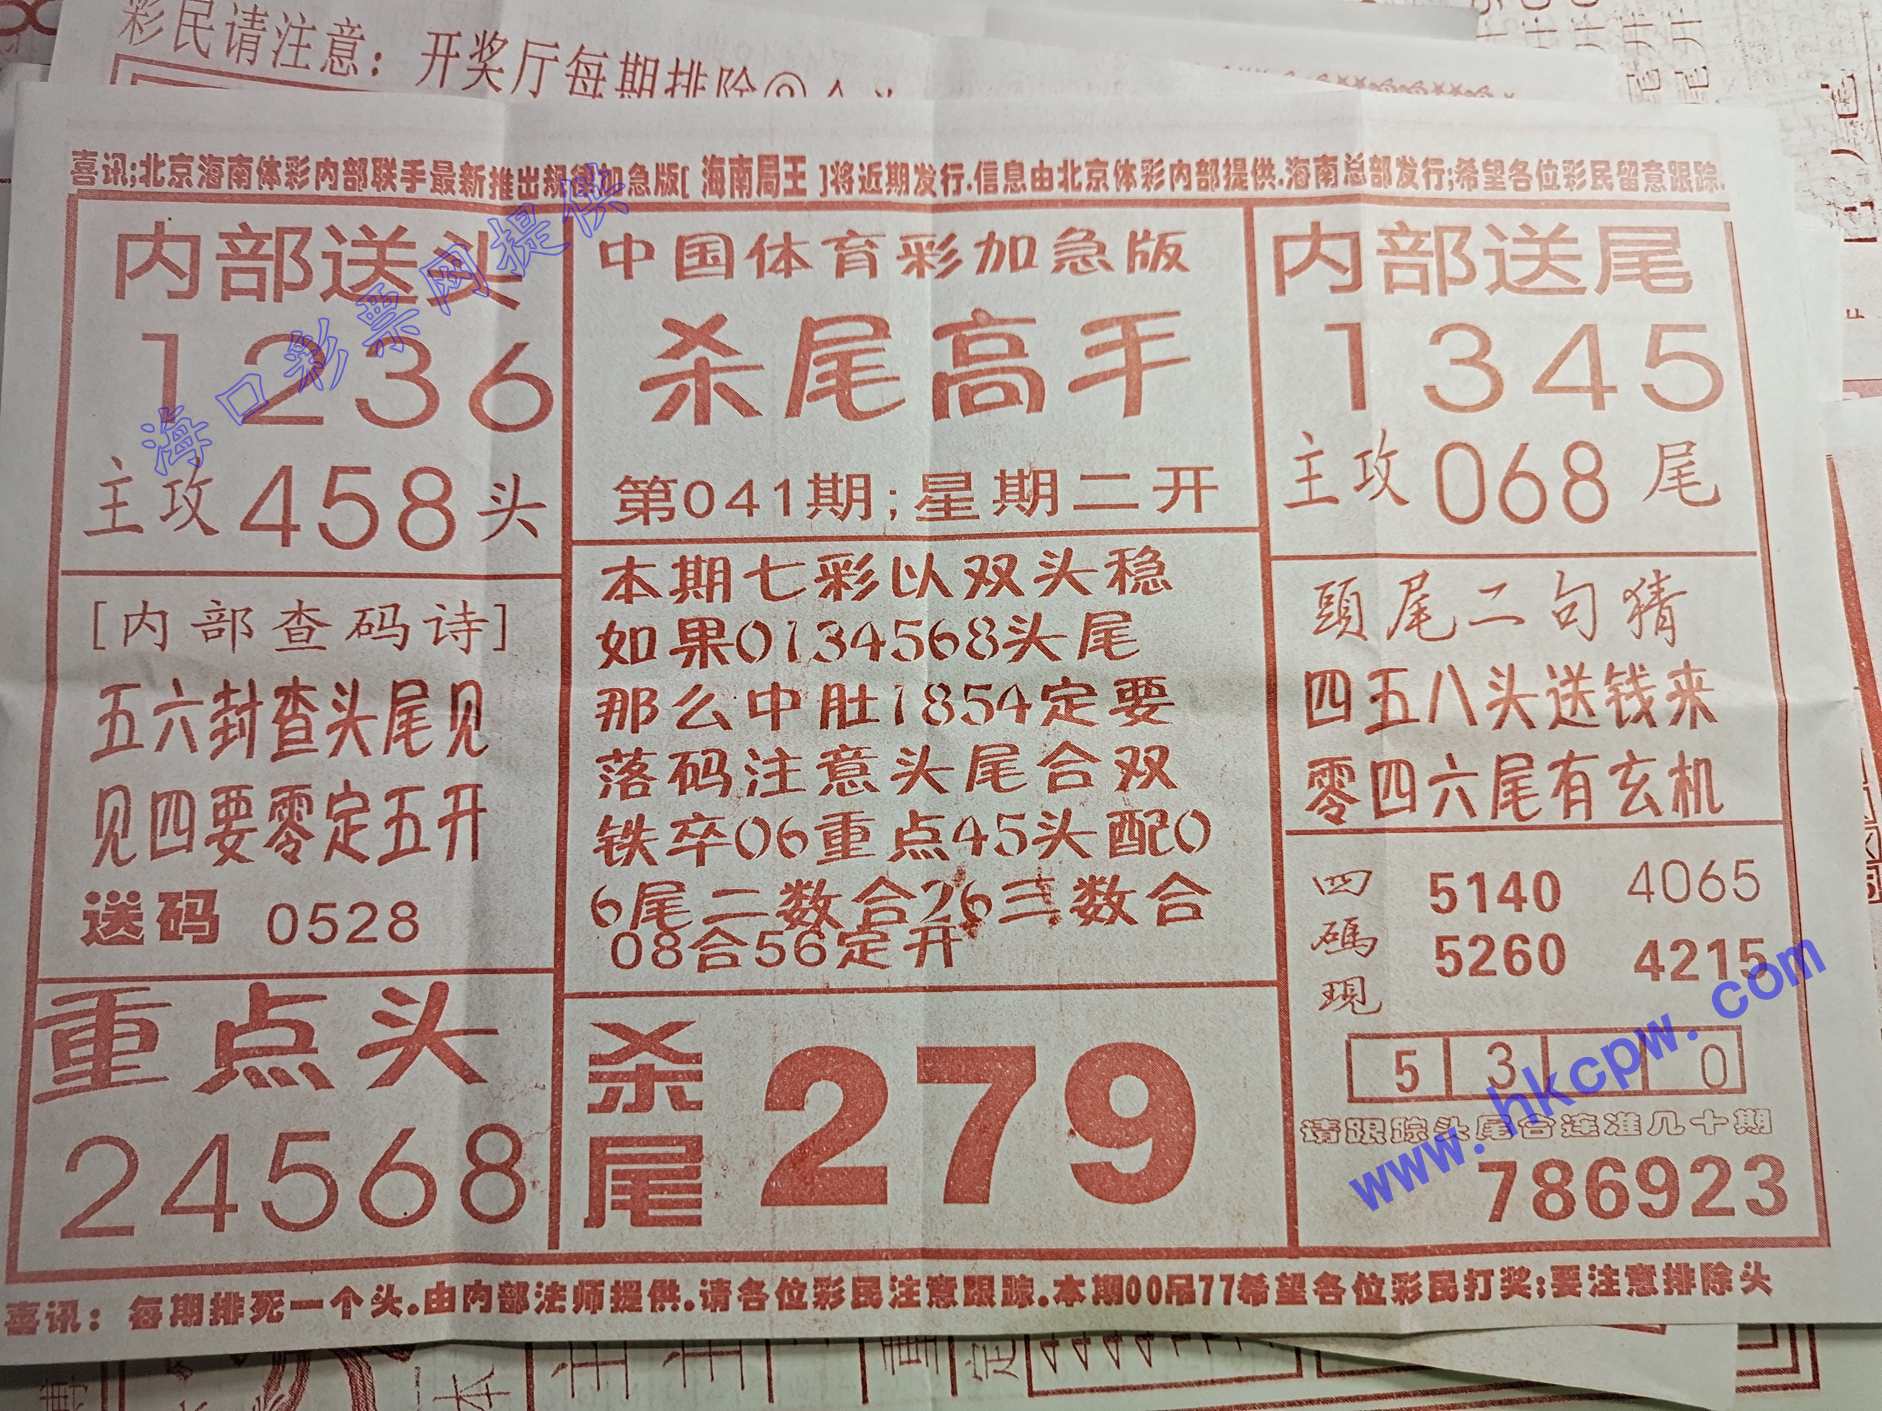 彩民请注意：开奖厅每期排除
喜讯;北京海南体彩内部联手最新推出规律加急版[ 海南局王 ]将近期发行.信息由北京体彩内部提供.海南总部发行;希望各位彩民留意跟踪.
内部送头
1236
主攻458头
[内部查码诗]
五六封查头尾见
见四要零定五开
送码 0528
重点头
24568
中国体育彩加急版
杀尾高手
第041期;星期二开
本期七彩以双头稳
如果0134568头尾
那么中肚1854定要
落码注意头尾合双
铁卒06重点45头配0
6尾二数合26三数合
08合56定开
杀尾
279
内部送尾
1345
主攻068尾
頭尾二句猜
四五八头送钱来
零四六尾有玄机
四碼現
5140 4065
5260 4215
5 3 0
请跟踪头尾合连准几十期
786923
喜讯：每期排死一个头.由内部法师提供.请各位彩民注意跟踪.本期00吊77希望各位彩民打奖;要注意排除头
海口彩票网提供
www.hkcpw.com